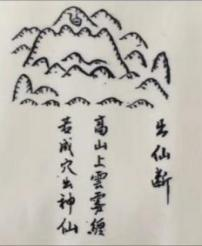 出仙断
高山上雲霧纏
若成穴出神仙